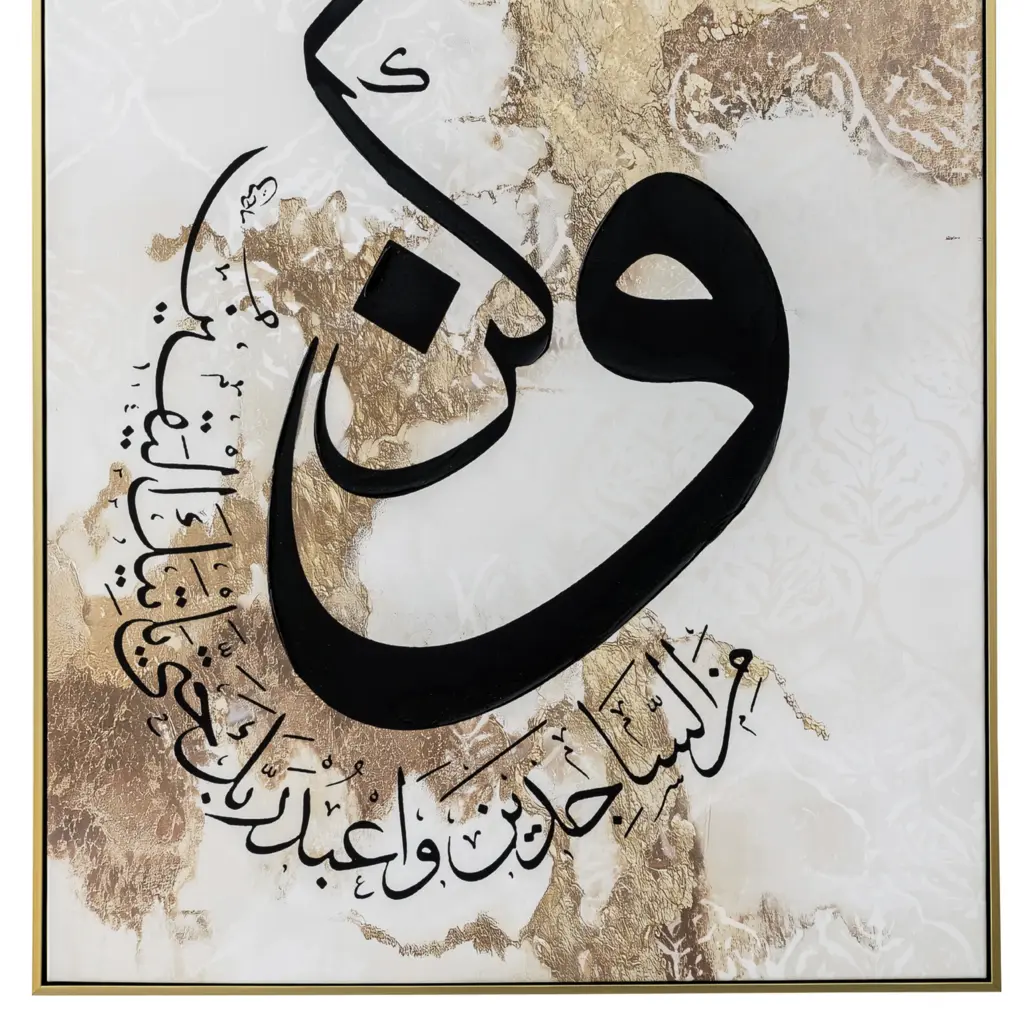 وكن
مِنَ السَّاجِدِينَ وَاعْبُدْ رَبَّكَ حَتَّى يَأْتِيَكَ الْيَقِينُ